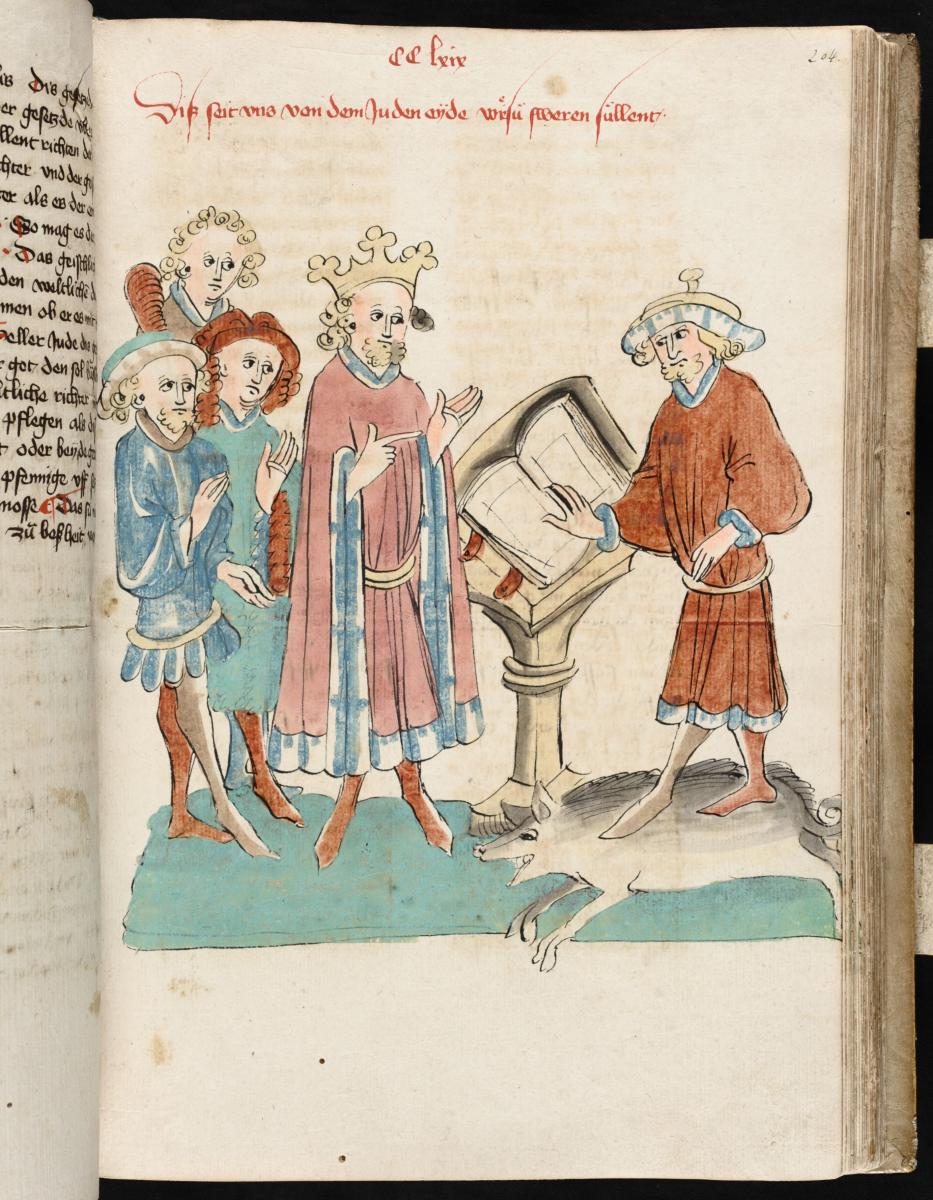 CC lxix
204.
Diß seit vns von dem Juden eyde wie sü sweren süllent
Dis gesetzde
er gesetzde
llent richten
chter vnd der
ter als es der
So mag es
Das geistlich
den weltliche
men ob er es mit
eller Jude die
r got den sol
ltliche richter
pflegen als
t oder beide
pfennige vff
nosse Das
zü boßheit